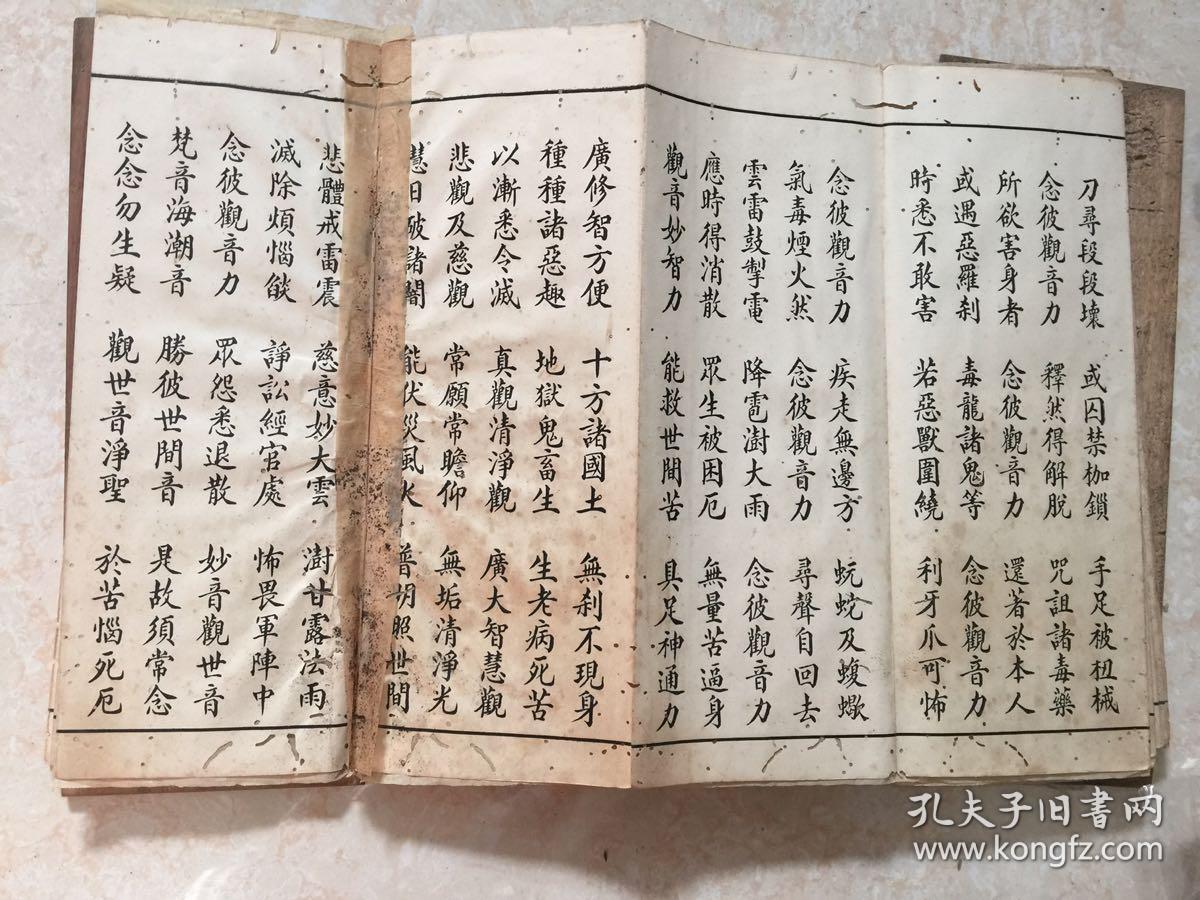 刀尋段段壞 或囚禁枷鎖 手足被杻械
念彼觀音力 釋然得解脫 咒詛諸毒藥
所欲害身者 念彼觀音力 還著於本人
或遇惡羅剎 毒龍諸鬼等 念彼觀音力
時悉不敢害 若惡獸圍繞 利牙爪可怖
念彼觀音力 疾走無邊方 蚖蛻及蝮蠍
氣毒煙火然 念彼觀音力 尋聲自回去
雲雷鼓掣電 降雹澍大雨 念彼觀音力
應時得消散 眾生被困厄 無量苦逼身
觀音妙智力 能救世間苦 具足神通力
廣修智方便 十方諸國土 無剎不現身
種種諸惡趣 地獄鬼畜生 生老病死苦
以漸悉令滅 真觀清淨觀 廣大智慧觀
悲觀及慈觀 常願常瞻仰 無垢清淨光
慧日破諸闇 能伏災風火 普明照世間
悲體戒雷震 慈意妙大雲 澍甘露法雨
滅除煩惱燄 諍訟經官處 怖畏軍陣中
念彼觀音力 眾怨悉退散 妙音觀世音
梵音海潮音 勝彼世間音 是故須常念
念念勿生疑 觀世音淨聖 於苦惱死厄
孔夫子旧书网
www.kongfz.com